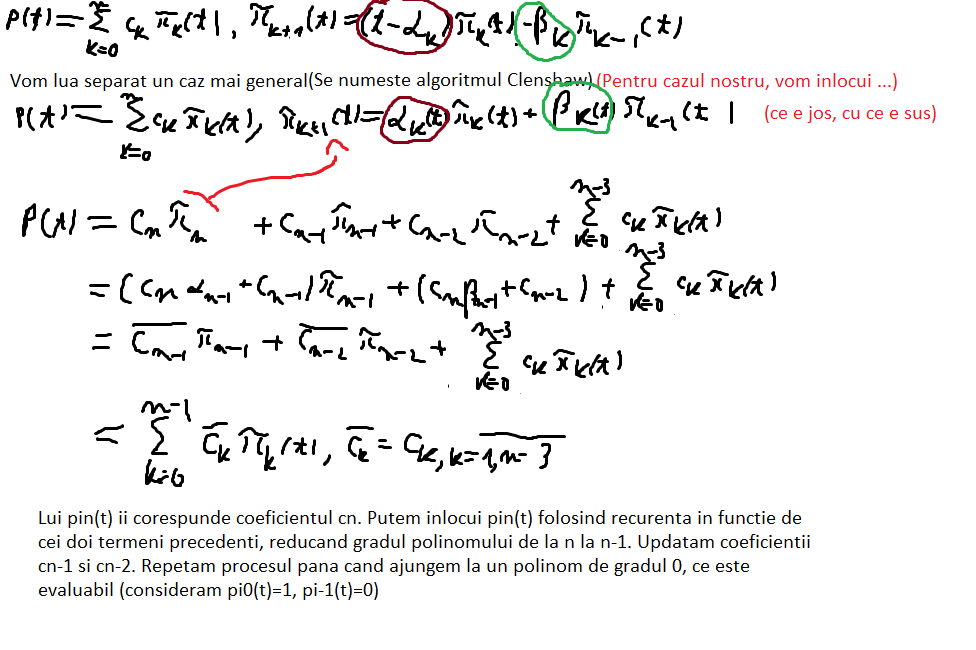 p(t) = Σ_{k=0}^{n} c_k π̃_k(t), π̃_{k+1}(t) = (t - α_k) π̃_k(t) - β_k π̃_{k-1}(t)
Vom lua separat un caz mai general(Se numeste algoritmul Clenshaw) (Pentru cazul nostru, vom inlocui ...)
p(t) = Σ_{k=0}^{n} c_k π̃_k(t), π̃_{k+1}(t) = α_k(t) π̃_k(t) + β_k(t) π̃_{k-1}(t) (ce e jos, cu ce e sus)
p(t) = c_n π̃_n + c_{n-1} π̃_{n-1} + c_{n-2} π̃_{n-2} + Σ_{k=0}^{n-3} c_k π̃_k(t)
= (c_n α_{n-1} + c_{n-1}) π̃_{n-1} + (c_n β_{n-1} + c_{n-2}) + Σ_{k=0}^{n-3} c_k π̃_k(t)
= c̅_{n-1} π̃_{n-1} + c̅_{n-2} π̃_{n-2} + Σ_{k=0}^{n-3} c_k π̃_k(t)
= Σ_{k=0}^{n-1} c̅_k π̃_k(t), c̅_k = c_k, k = 1, n-3
Lui pin(t) ii corespunde coeficientul cn. Putem inlocui pin(t) folosind recurenta in functie de
cei doi termeni precedenti, reducand gradul polinomului de la n la n-1. Updatam coeficientii
cn-1 si cn-2. Repetam procesul pana cand ajungem la un polinom de gradul 0, ce este
evaluabil (consideram pi0(t)=1, pi-1(t)=0)